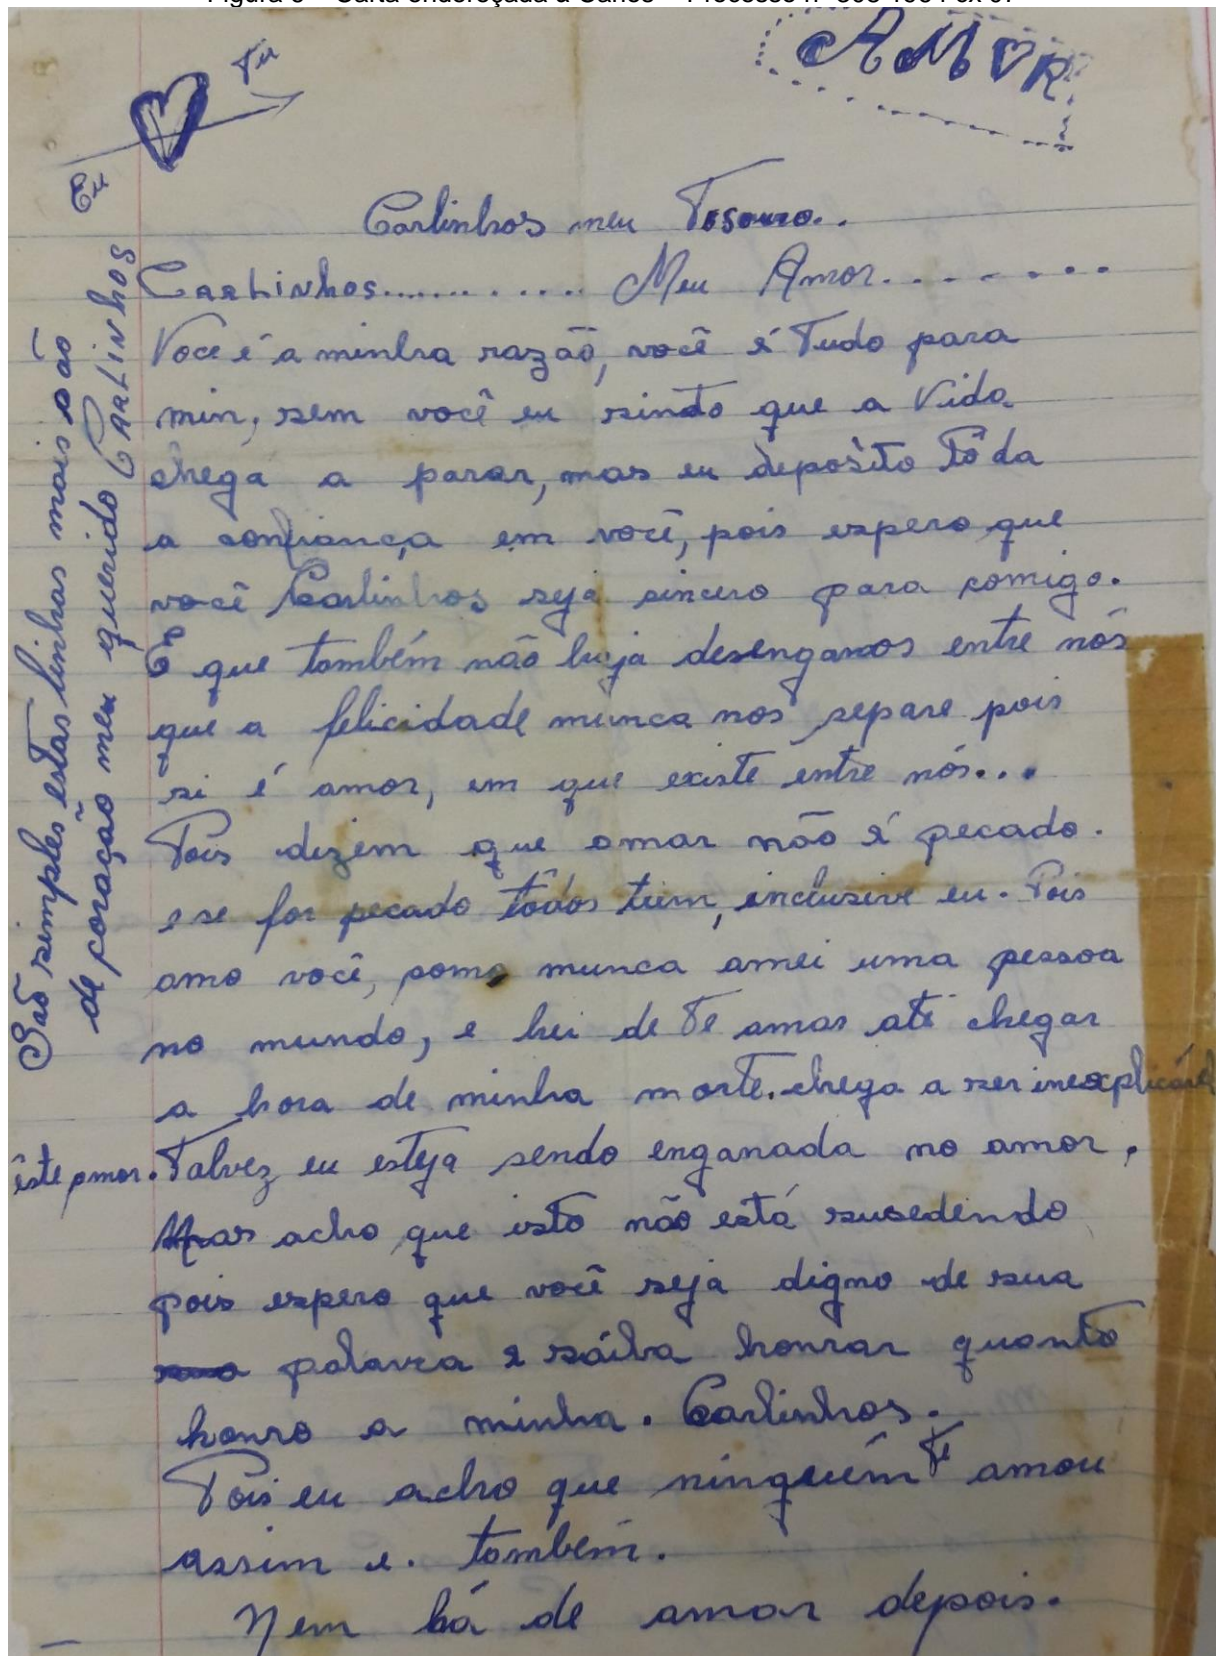 Tu
Eu
AMOR
Carlinhos meu Tesouro..
CARLINhos............ Meu Amor........
Voce é a minha razão, você é Tudo para
min, sem você eu sindo que a Vida
chega a parar, mas eu deposito tôda
a confiança em você, pois espero que
você Carlinhos seja sincero para comigo.
E que também não haja desenganos entre nós
que a felicidade nunca nos separe pois
si é amor, em que existe entre nós...
Pois dizem que amar não é pecado.
e se for pecado todos teem, inclusive eu. Pois
amo você, como nunca amei uma pessoa
no mundo, e hei de Te amar até chegar
a hora de minha morte. chega a ser inexplicável
êste amor. Talvez eu esteja sendo enganada no amor.
Mas acho que isto não está susedendo
pois espero que você seja digno de sua
palavra e sáiba honrar quanto
honro a minha. Carlinhos.
Pois eu acho que ninguém Te amou
assim e. também.
Nem há de amar depois.
São simples estas linhas mais são
de coração meu querido CARLINHOS